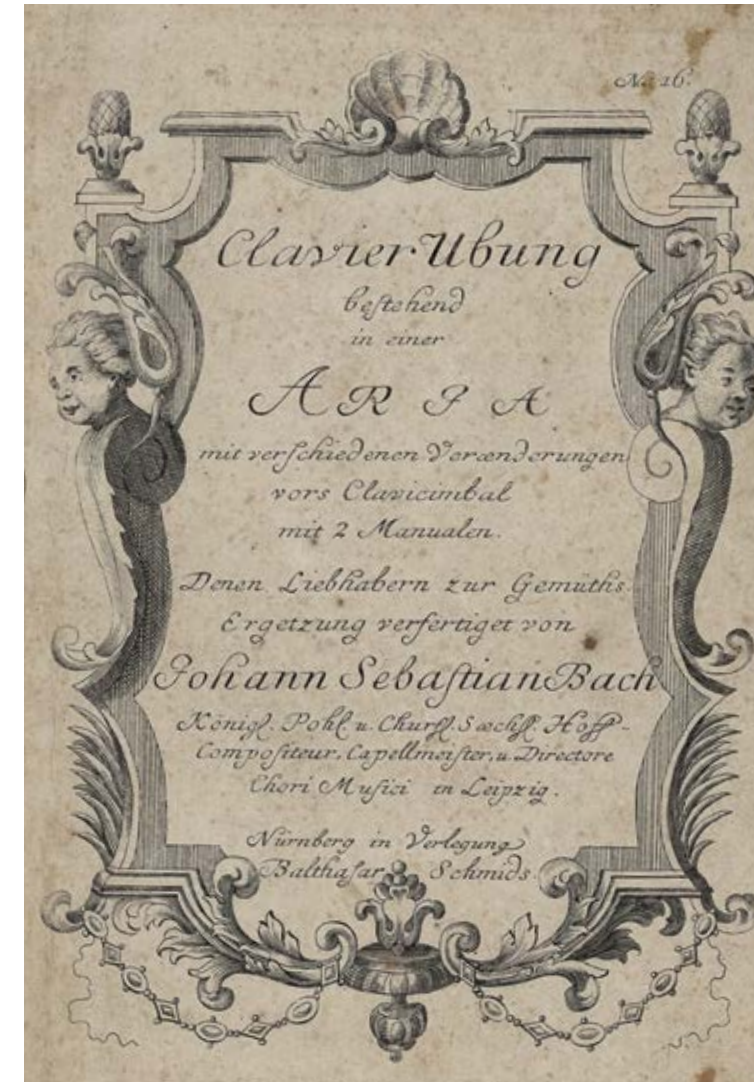 No. 16.
Clavier Ubung
bestehend
in einer
ARIA
mit verschiedenen Verænderungen
vors Clavicimbal
mit 2 Manualen.
Denen Liebhabern zur Gemüths-
Ergetzung verfertiget von
Johann Sebastian Bach
Königl. Pohl. u. Churfl. Sæchß. Hoff-
Compositeur, Capellmeister, u. Directore
Chori Musici in Leipzig.
Nürnberg in Verlegung
Balthasar Schmids.